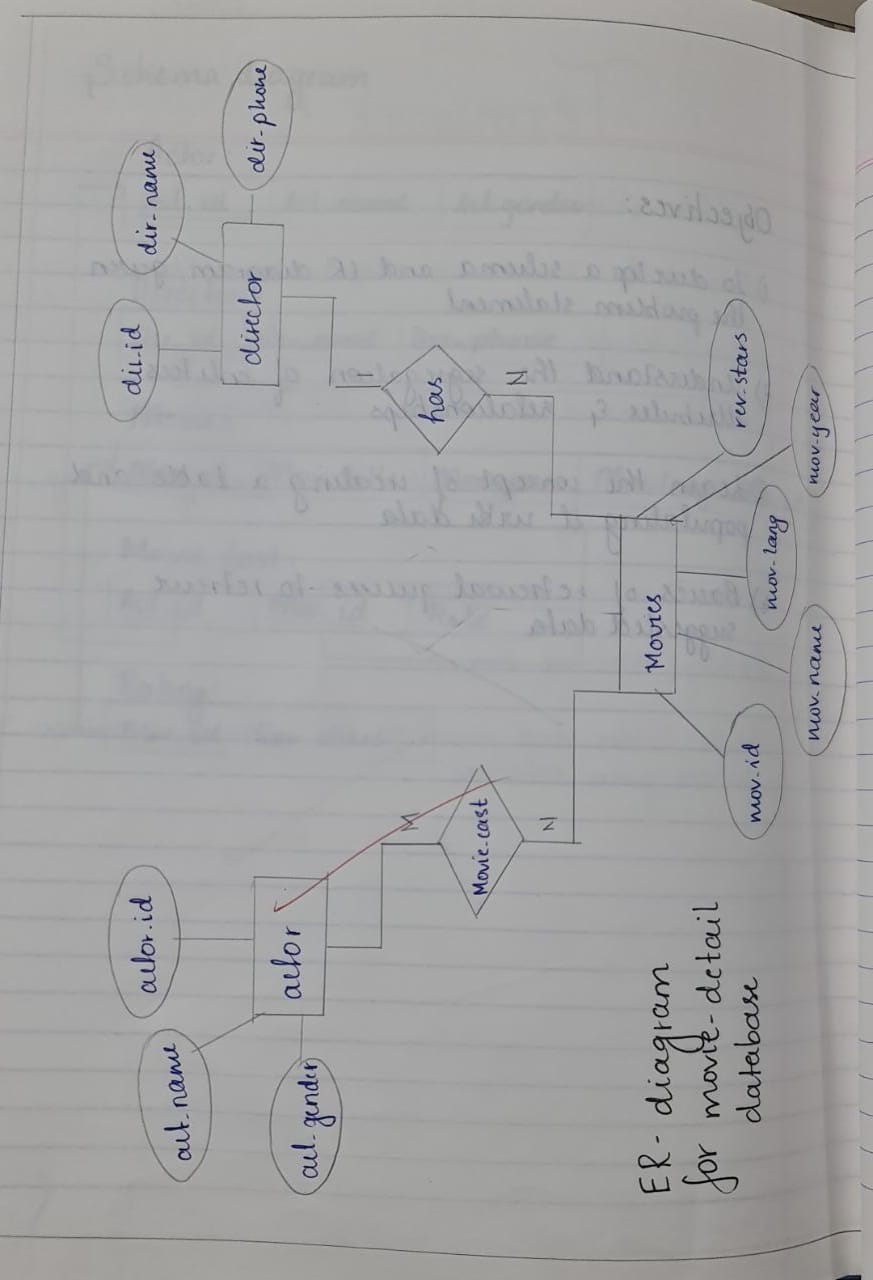 actor.id
act.name
act.gender
actor
M
Movie.cast
N
dir.id
dir-name
dir-phone
director
1
has
N
Movies
mov.id
mov.name
mov-lang
mov-year
rev.stars
ER- diagram
for movie-detail
database